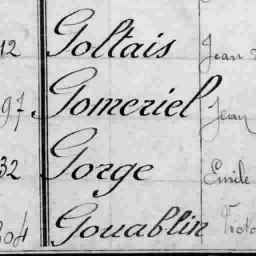 12 Goltais Jean
97 Gomeriel Jean
32 Gorge Emile
304 Gouablin